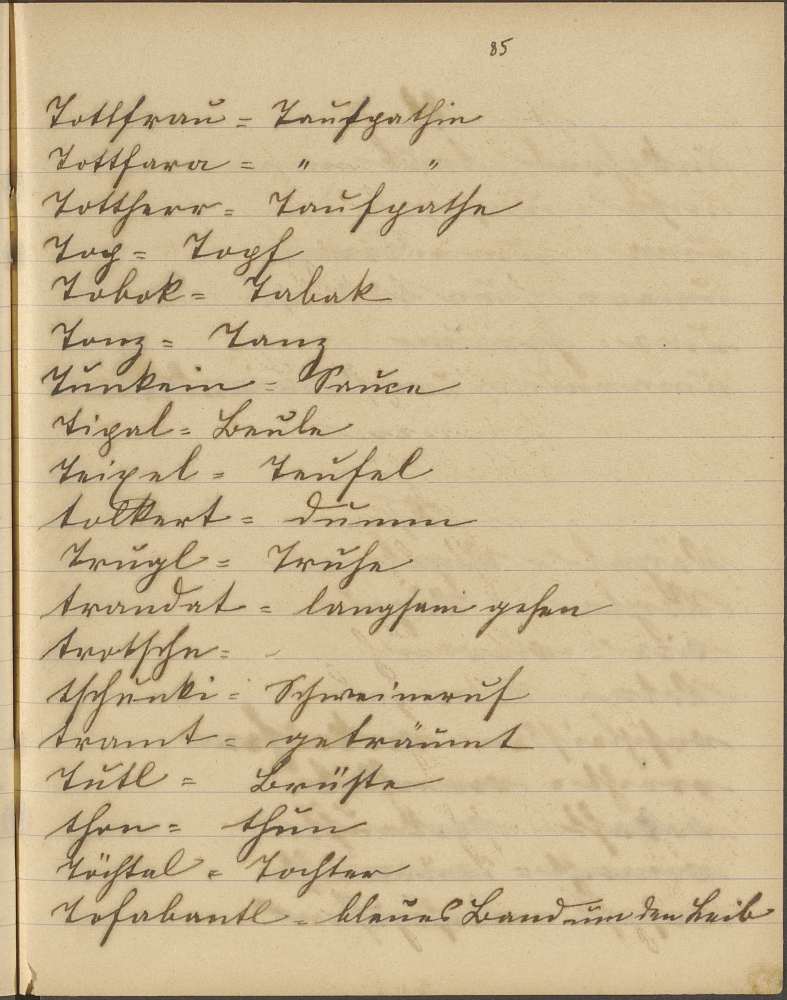 85
Tottfrau = Taufpathin
Tottfara = " "
Tottherr = Taufpathe
Top = Topf
Tobok = Tabak
Tonz = Tanz
Tunkein = Sauce
Tipal = Beule
Teipel = Teufel
tolkert = dumm
Trugl = Truhe
trandat = langsam gehen
trotschn =
tschunki = Schweineruf
tramt = geträumt
Tutl = Brüste
thon = thun
Töchtal = Tochter
Tofabantl = blaues Band um den Leib